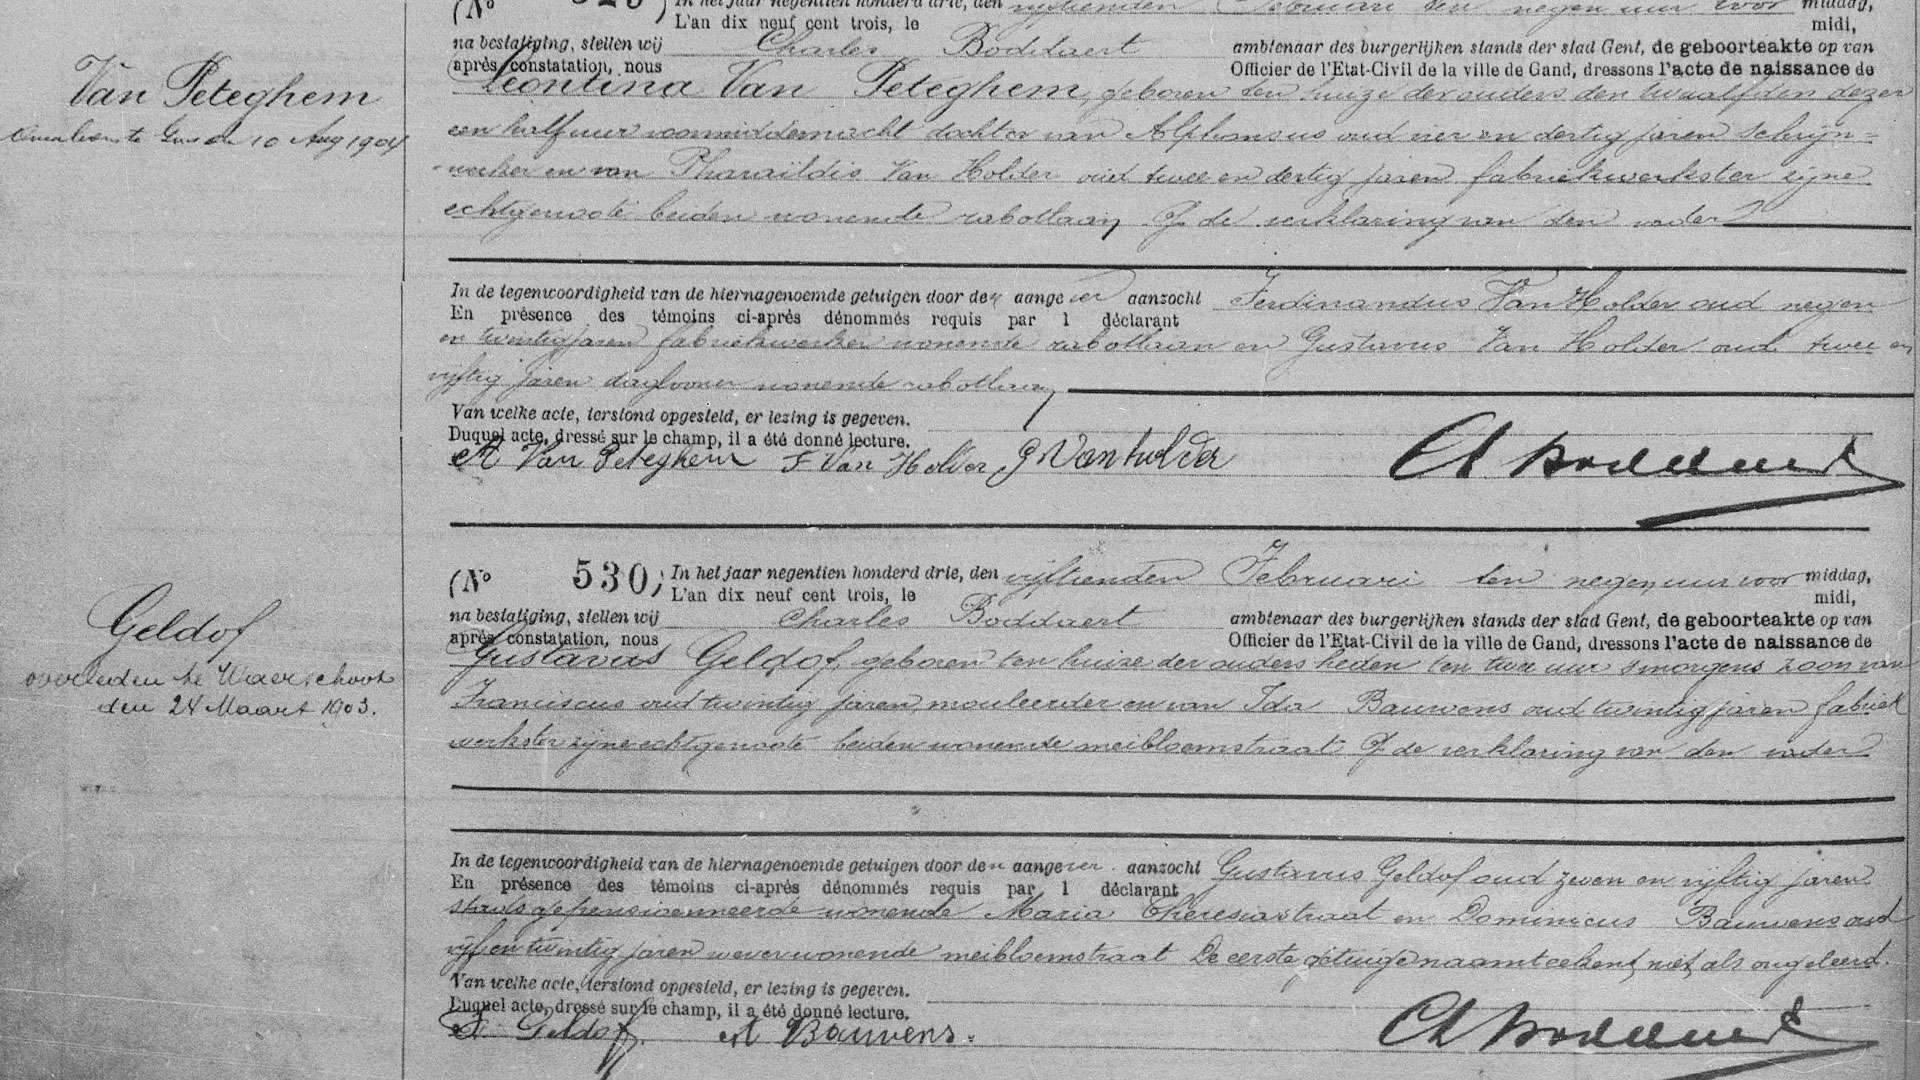 (No 529) In het jaar negentien honderd drie, den vijftienden Februari ten negen uur voor middag,
L'an dix neuf cent trois, le midi,
na bestatiging, stellen wij Charles Boddaert ambtenaar des burgerlijken stands der stad Gent, de geboorteakte op van
après constatation, nous Officier de l'Etat-Civil de la ville de Gand, dressons l'acte de naissance de
Van Peteghem
Leontina Van Peteghem, geboren ten huize der ouders den twaalfden dezer
te Gent den 10 Aug 1904
een half uur voormiddernacht dochter van Alphonsus oud vier en dertig jaren schrijn=
=werker en van Pharaïldis Van Holder oud twee en dertig jaren fabriekwerkster zijne
echtgenoote beiden wonende rabotlaan. Op de verklaring van den vader
In de tegenwoordigheid van de hiernagenoemde getuigen door den aangever aanzocht Ferdinandus Van Holder oud negen
En présence des témoins ci-après dénommés requis par l déclarant
en twintig jaren fabriekwerker wonende rabotlaan en Gustavus Van Holder oud twee en
vijftig jaren daglooner wonende rabotlaan
Van welke acte, terstond opgesteld, er lezing is gegeven.
Duquel acte, dressé sur le champ, il a été donné lecture.
A Van Peteghem F Van Holder, G Vanholder Ch Boddaert
(No 530) In het jaar negentien honderd drie, den vijftienden Februari ten negen uur voor middag,
L'an dix neuf cent trois, le midi,
na bestatiging, stellen wij Charles Boddaert ambtenaar des burgerlijken stands der stad Gent, de geboorteakte op van
après constatation, nous Officier de l'Etat-Civil de la ville de Gand, dressons l'acte de naissance de
Geldof
overleden te Waerschoot
den 24 Maart 1903.
Gustavus Geldof, geboren ten huize der ouders heden ten twee uur smorgens zoon van
Franciscus oud twintig jaren, mouleerder en van Ida Bauwens oud twintig jaren fabriek
werkster zijne echtgenoote beiden wonende meibloemstraat. Op de verklaring van den vader
In de tegenwoordigheid van de hiernagenoemde getuigen door den aangever aanzocht Gustavus Geldof oud zeven en vijftig jaren
En présence des témoins ci-après dénommés requis par l déclarant
stadsgepensionneerde wonende Maria Theresiastraat en Dominicus Bauwens oud
vijf en twintig jaren wever wonende meibloemstraat De eerste getuige naamteekent niet als ongeleerd.
Van welke acte, terstond opgesteld, er lezing is gegeven.
Duquel acte, dressé sur le champ, il a été donné lecture.
F. Geldof. A Bauwens. Ch Boddaert